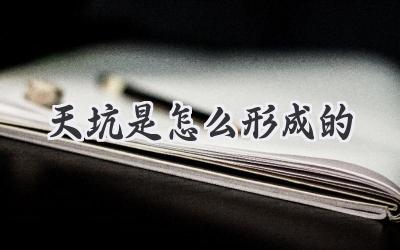 天坑是怎么形成的